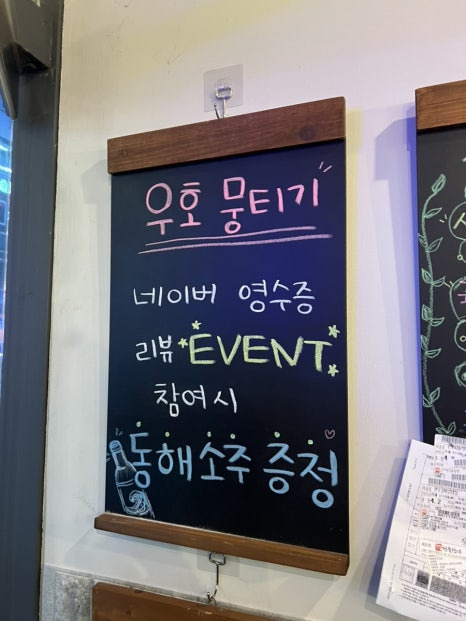 우호 뭉티기
네이버 영수증
리뷰 EVENT
참여시
동해소주 증정